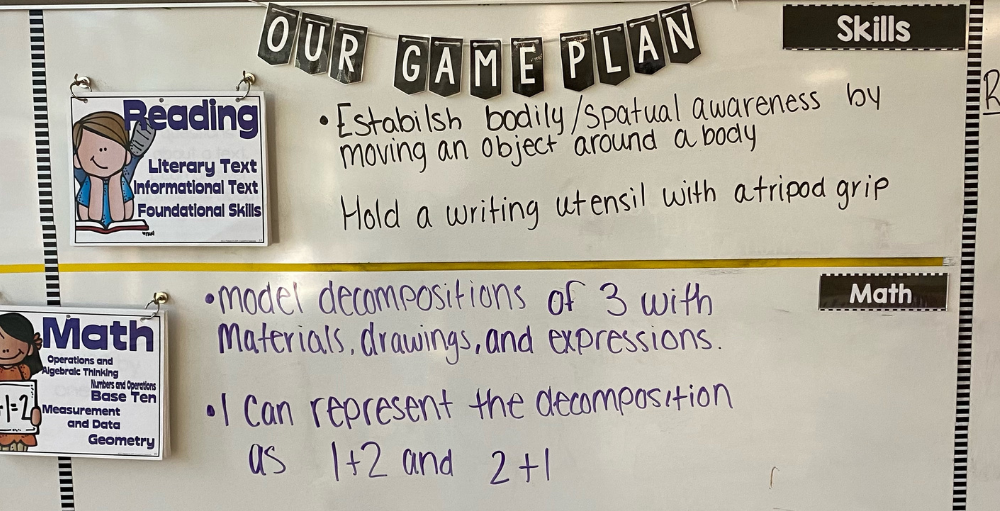 OUR GAME PLAN
Skills
R
Reading
Literary Text
Informational Text
Foundational Skills
• Estabilsh bodily/spatual awareness by
moving an object around a body
Hold a writing utensil with a tripod grip
Math
Math
Operations and
Algebraic Thinking
Numbers and Operations
Base Ten
Measurement
and Data
Geometry
+1=2
• model decompositions of 3 with
Materials, drawings, and expressions.
• I can represent the decomposition
as 1+2 and 2+1